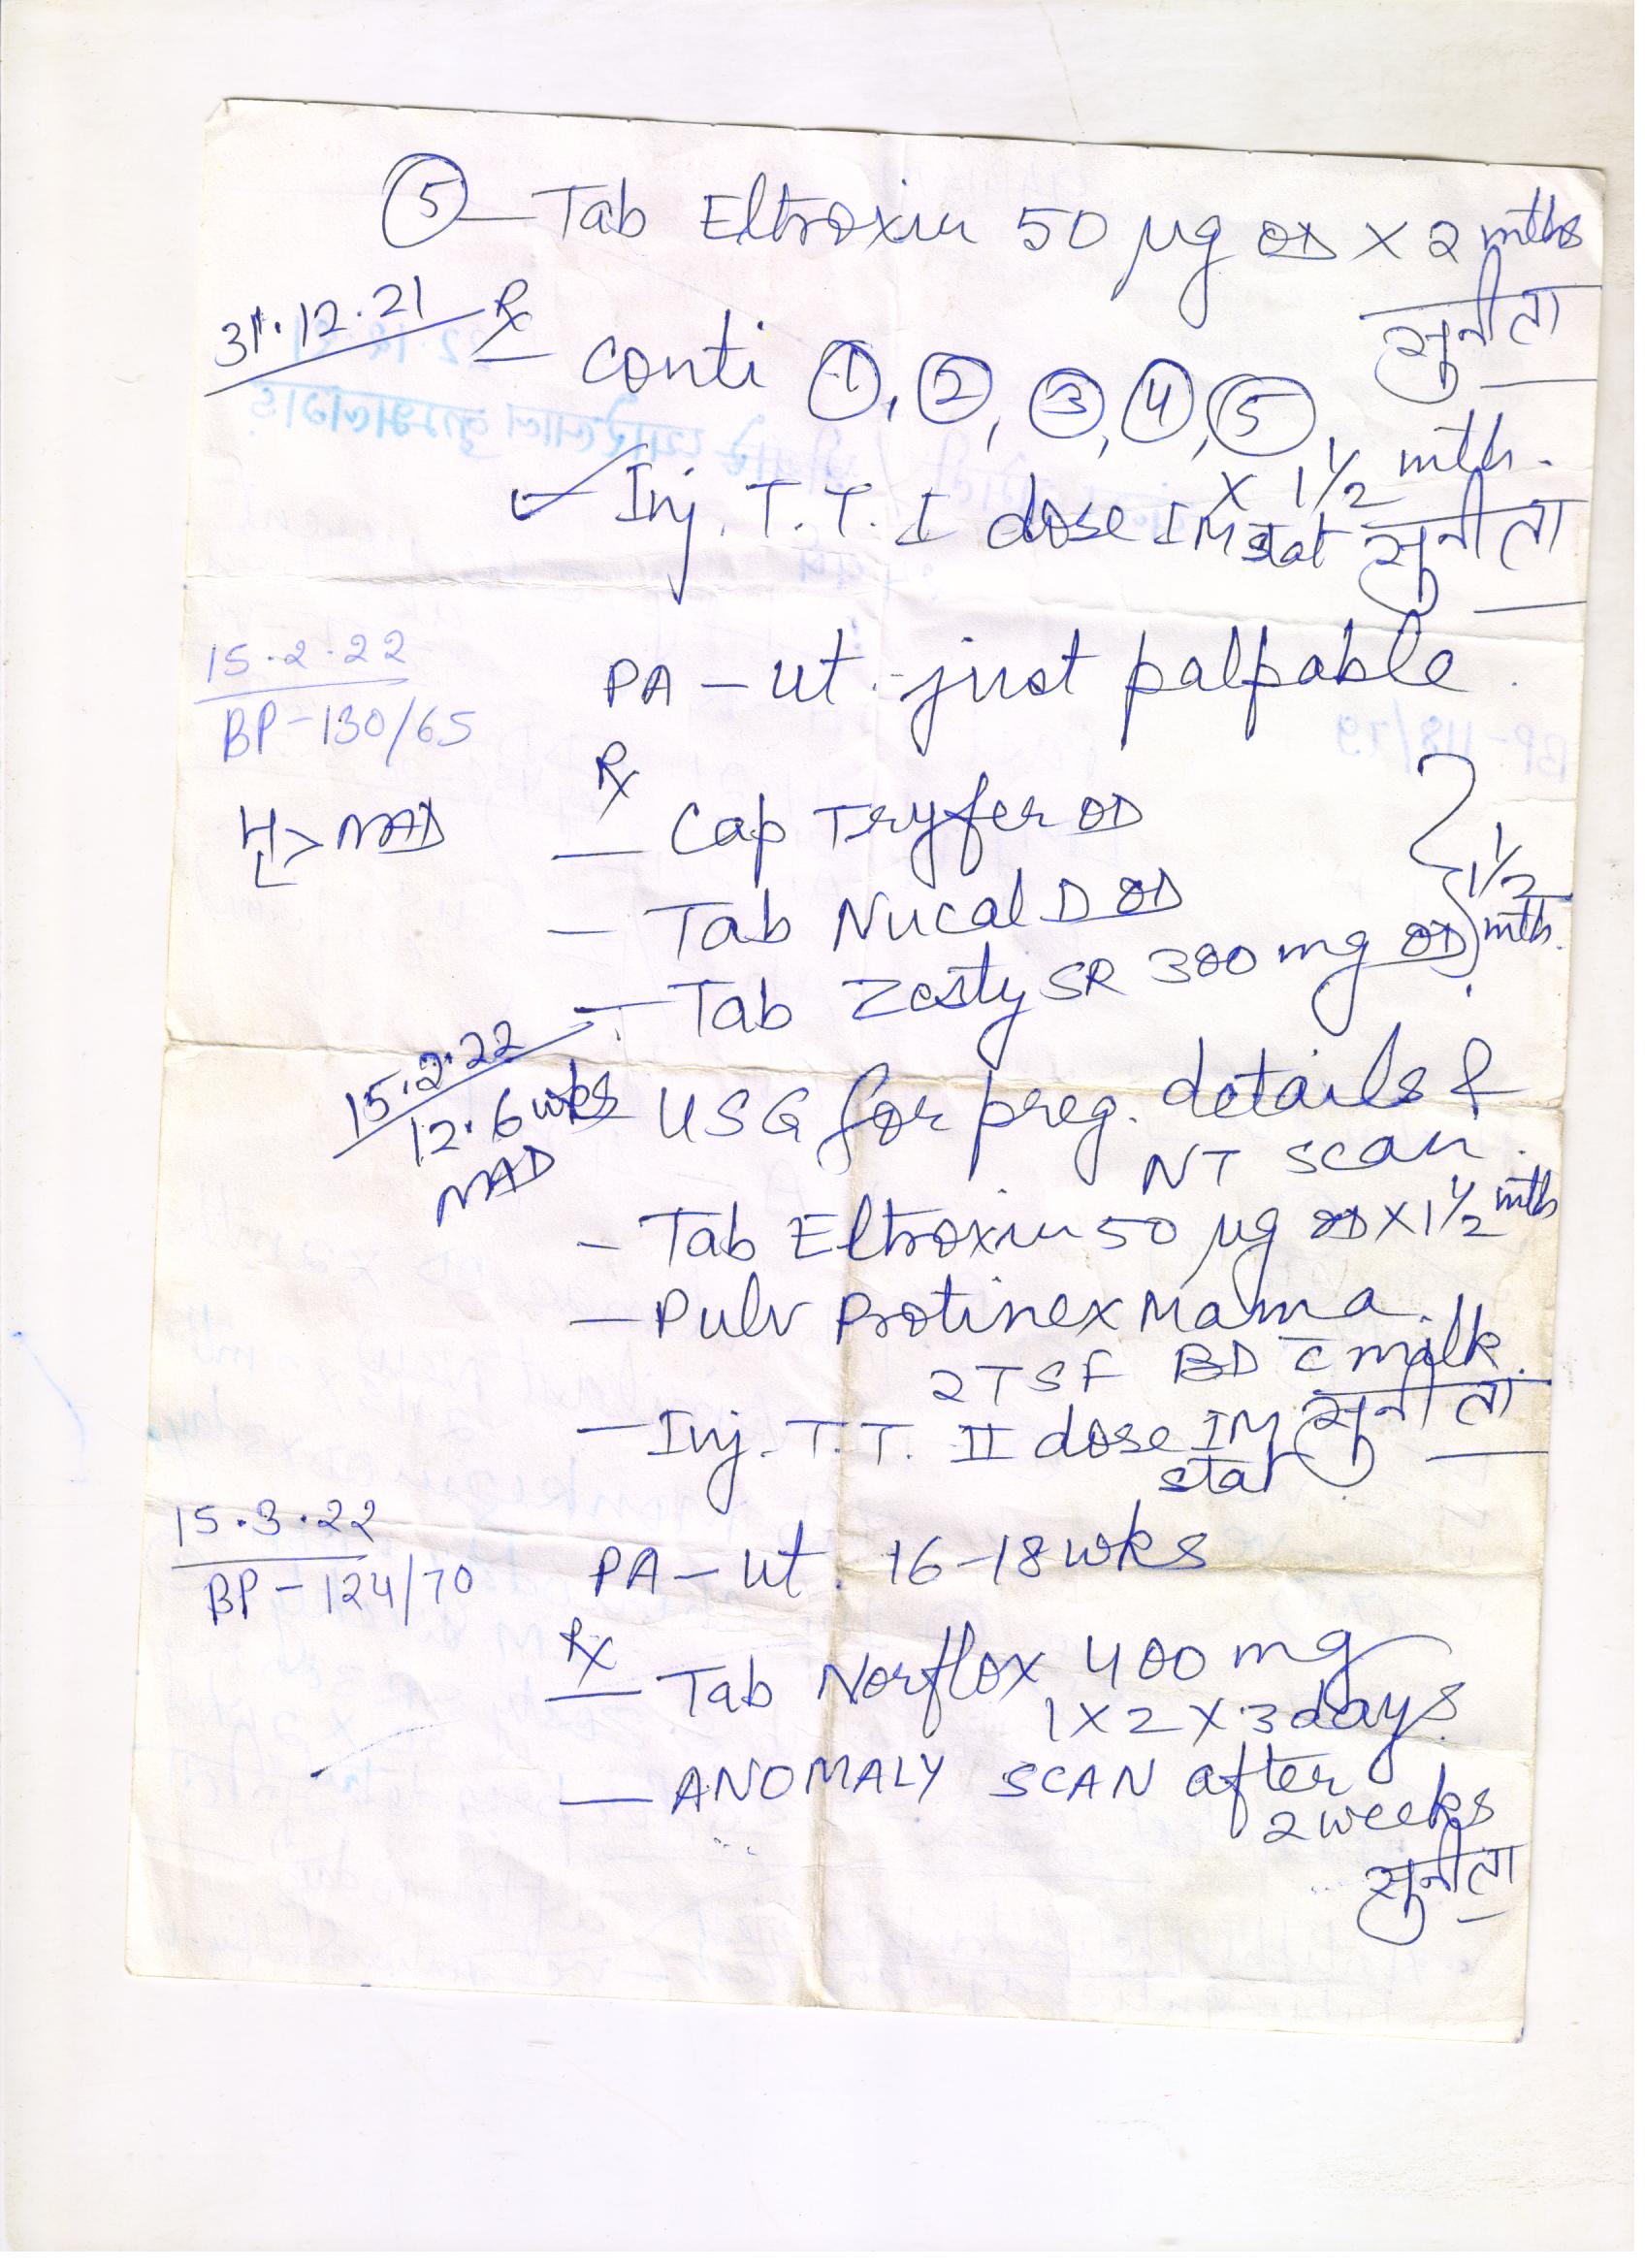 ⑤ — Tab Eltroxin 50 µg OD X 2 mths
सुनीता
31.12.21 Rx
conti ①, ②, ③, ④, ⑤
X 1½ mth.
✓ Inj. T.T. I dose IM stat सुनीता
15.2.22
BP - 130/65
PA - ut. just palpable.
Rx
NAD
— Cap Tryfer OD
— Tab Nucal D OD
— Tab Zesty SR 300 mg OD
1½ mth.
15.2.22
12.6 wks
NAD
USG for preg. details &
NT scan.
- Tab Eltroxin 50 µg OD X 1½ mth
— Pulv Protinex Mama.
2 TSF BD c̄ milk.
— Inj. T.T. II dose IM
stat सुनीता
15.3.22
BP - 124/70
PA - ut. 16-18 wks
Rx
— Tab Norflox 400 mg
1 X 2 X 3 days
— ANOMALY SCAN after
2 weeks
सुनीता